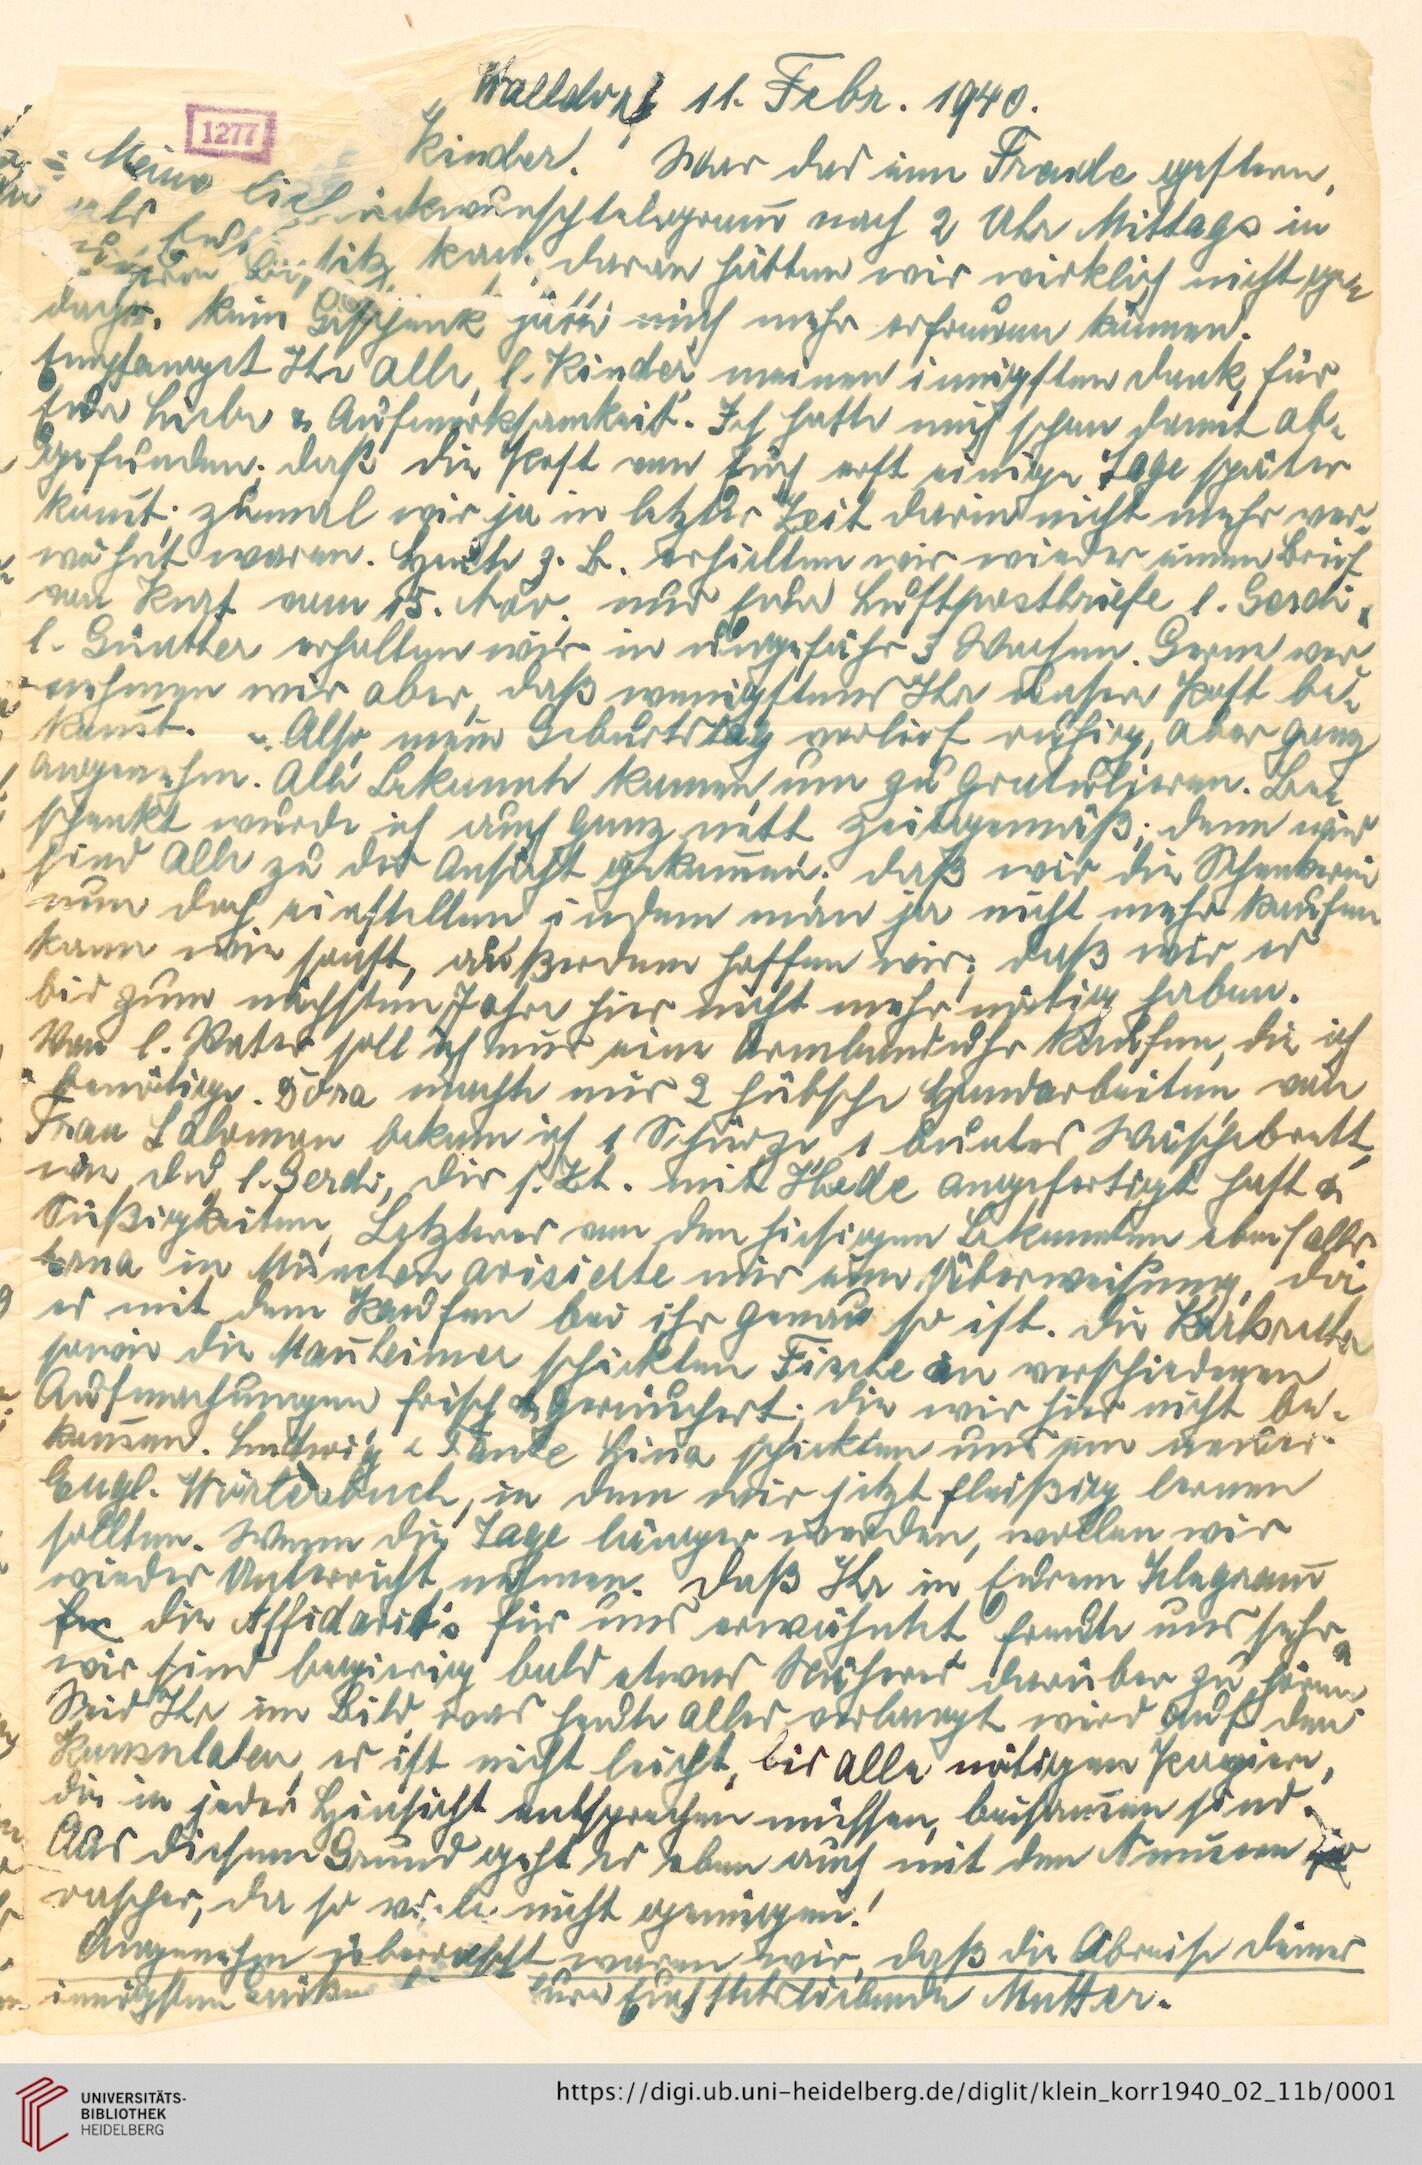 Walldorf 11. Febr. 1940.
1277
Meine lieben Kinder! War das eine Freude gestern,
als Euer Glückwunschtelegram̄ nach 2 Uhr Mittags in
unseren Besitz kam, daran hätten wir wirklich nicht ge-
dacht. Kein Geschenk hätte mich mehr erfreuen können.
Empfanget Ihr alle, l. Kinder, meinen innigsten Dank, für
Eure Liebe & Aufmerksamkeit. Ich hatte mich schon damit ab-
gefunden, daß die Post von Euch erst einige Tage später
kom̄t, zumal wir ja in letzter Zeit darin nicht mehr ver-
wöhnt waren. Heute z. B. erhielten wir wieder einen Brief
von Kurt vom 15. Nov. nur Eure Luftpostbriefe l. Gerdi,
l. Günther erhalten wir in ungefähr 3 Wochen. Gerne ver-
nehmen wir aber, daß wenigstens Ihr unsere Post be-
kom̄t. – Also mein Geburtstag verlief ruhig, aber ganz
angenehm. Alle Bekannte kamen, um zu gratulieren. Be-
schenkt wurde ich auch ganz nett zeitgemäß, denn wir
sind alle zu der Ansicht gekom̄en, daß wir die Schenkerei
nun doch einstellen indem man ja nicht mehr kaufen
kann wie sonst, außerdem hoffen wir, daß wir es
bis zum nächsten Jahre hier nicht mehr nötig haben.
Von l. Vater soll ich mir eine Armbanduhr kaufen, die ich
benötige. Dora machte mir 2 hübsche Handarbeiten von
Frau Salomon bekam ich 1 Schürze, 1 buntes Waschebrett,
wie Du, l. Gerdi, Dir s. Zt. mit Hede angefertigt hast &
Süßigkeiten, Letzteres von den hiesigen Bekannten ebenfalls
Erna in München avisierte mir eine Überweisung, da
es mit dem Kaufen bei ihr genau so ist. Die Karlsruher
sowie die Man̄heimer schickten Fische in verschiedenen
Aufmachungen frisch & geräuchert, die wir hier nicht be-
kom̄en. Ludwig & Tante Lina schickten uns ein neues
Engl. Wörterbuch, in dem wir jetzt fleißig lernen
sollten. Wenn die Tage länger werden, wollen wir
wieder Unterricht nehmen. Daß Ihr in Eurem Telegram̄
die Affidavit's für uns erwähntet freute uns sehr &
wir sind begierig bald etwas Näheres darüber zu hören.
Seid Ihr im Bild was heute alles verlangt wird auf den
Konsulaten, es ist nicht leicht, bis alle nötigen Papiere,
die in jeder Hinsicht entsprechen müssen, beisam̄en sind.
Aus diesem Grund geht es eben auch mit den Num̄ern
rascher, da so viele nicht genügen!
Angenehm überrascht waren wir, daß die Abreise deines
innigsten Grüßen Eure Euch stets liebende Mutter.
UNIVERSITÄTS-
BIBLIOTHEK
HEIDELBERG
https://digi.ub.uni-heidelberg.de/diglit/klein_korr1940_02_11b/0001